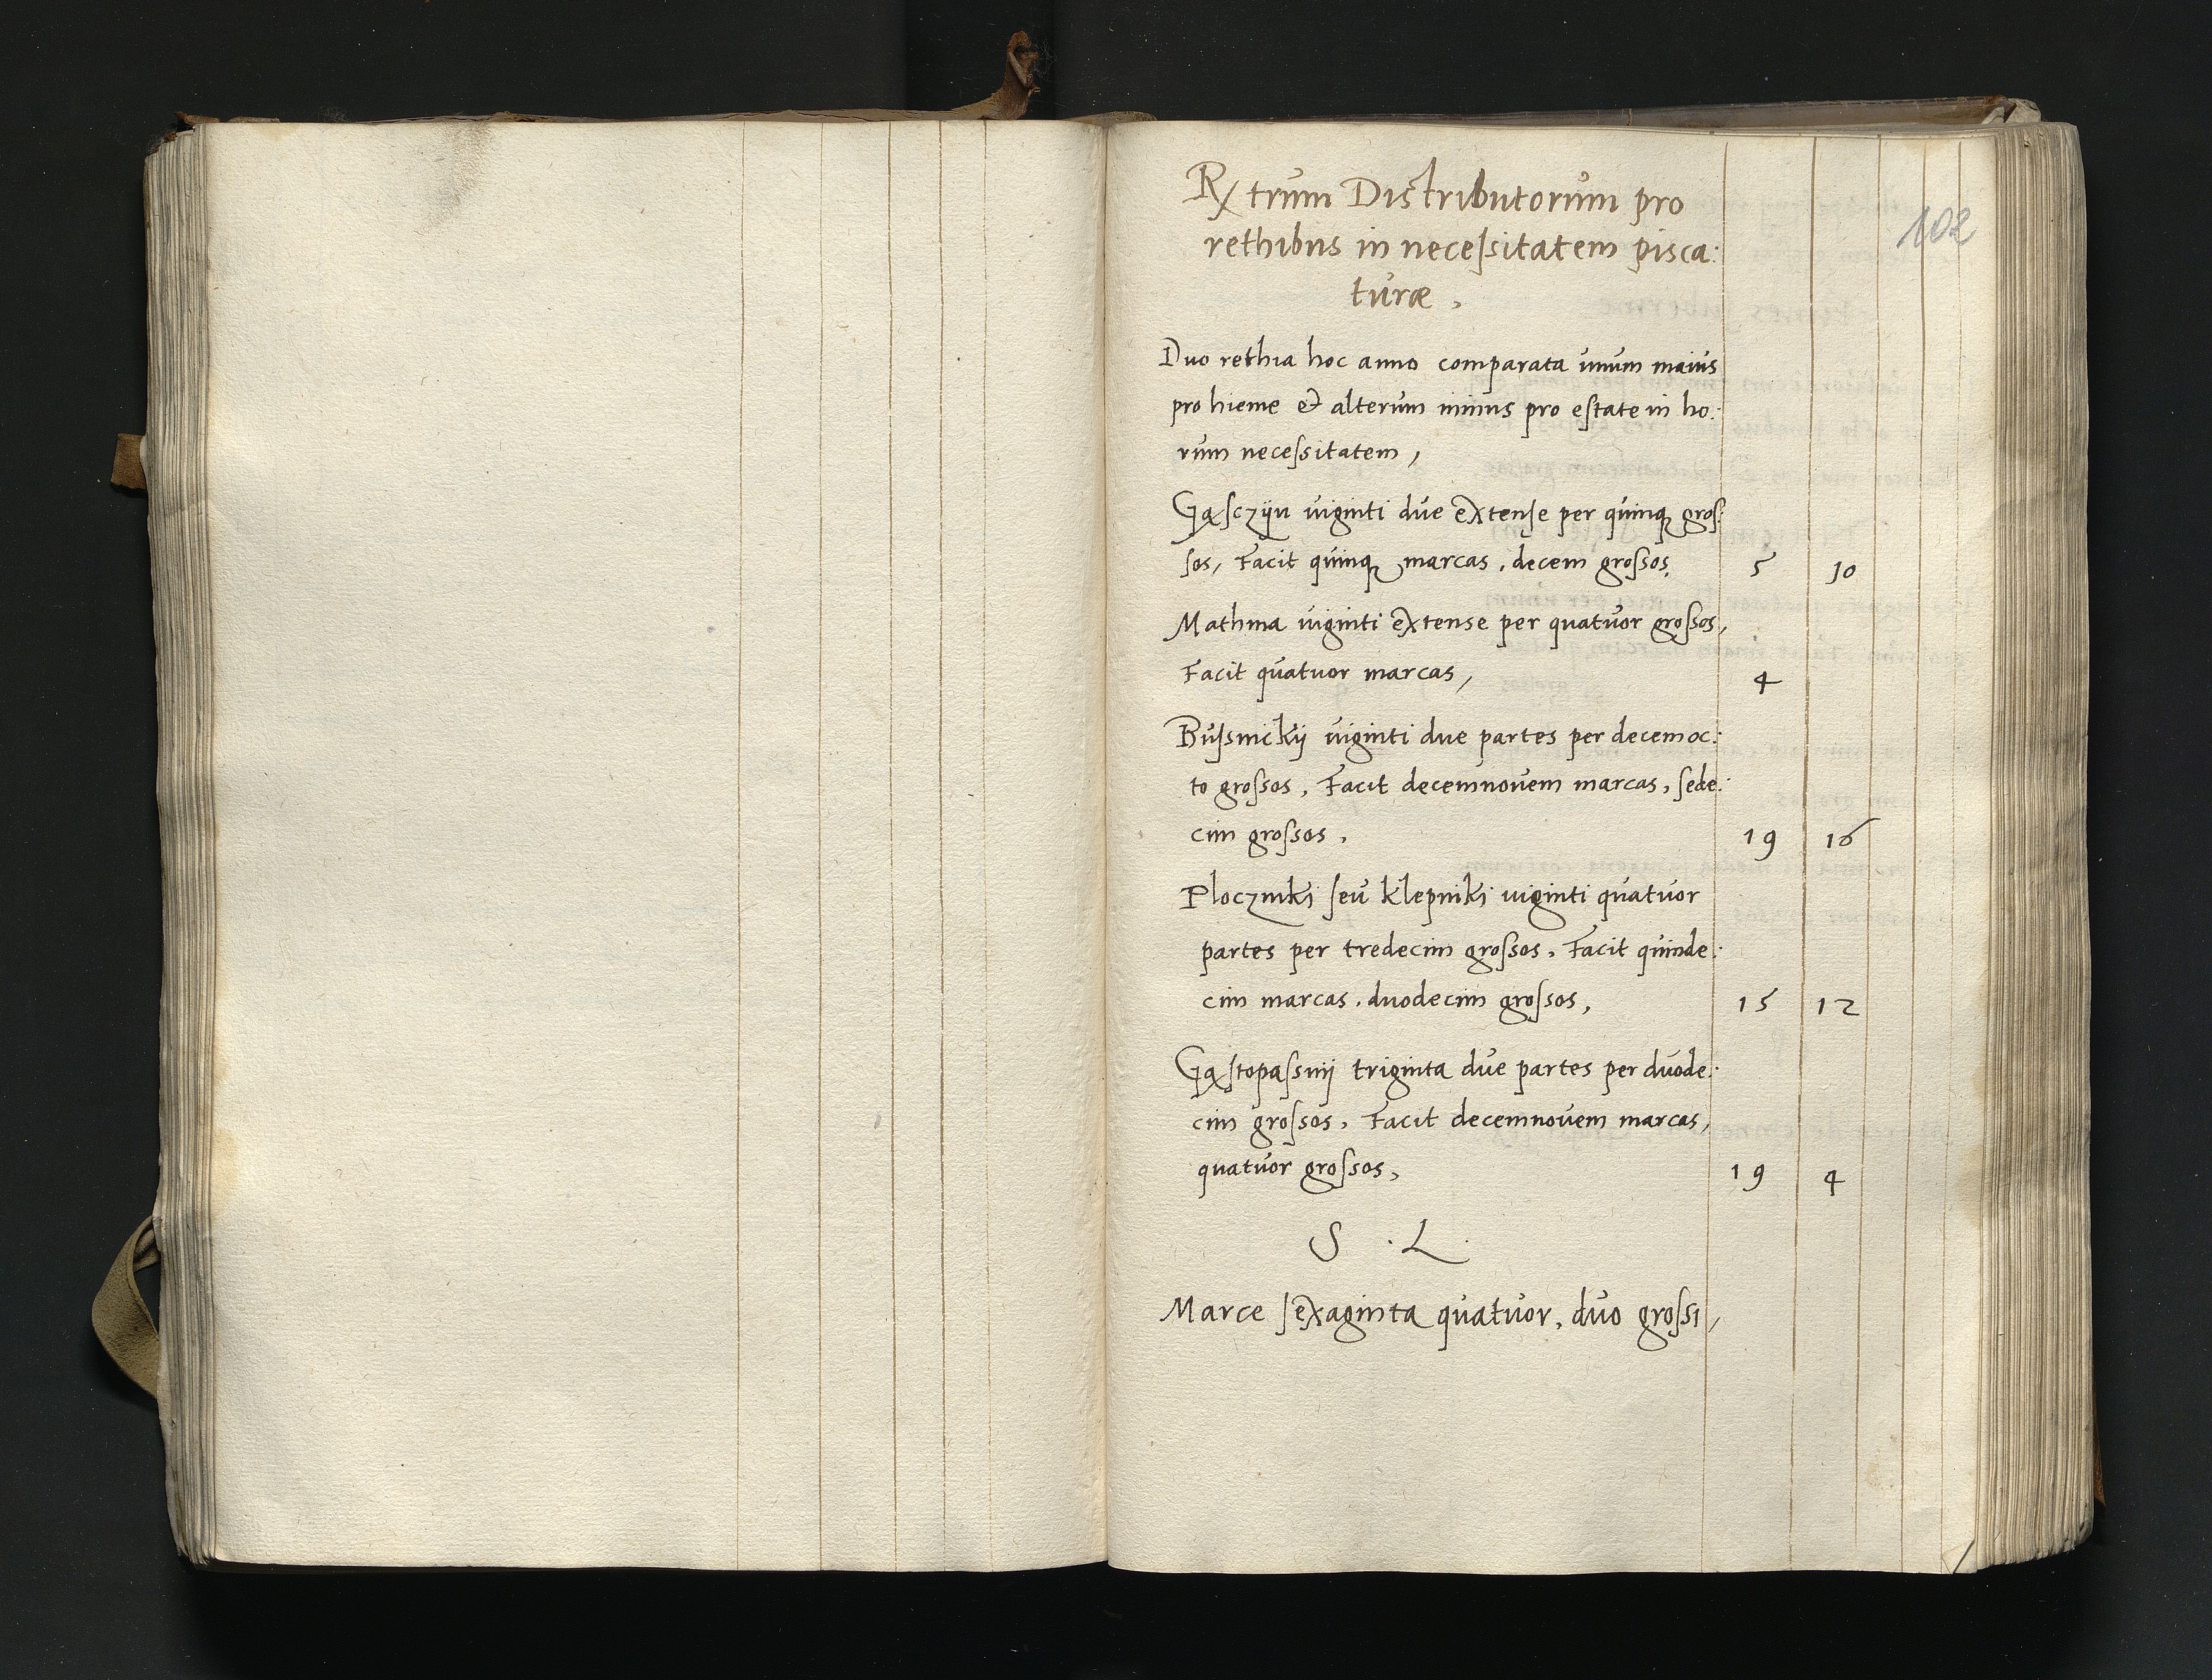 102
Rx trum Distributorum pro
rethibus in neceſsitatem pisca:
turæ,
Duo rethia hoc anno comparata unum maius
pro hieme et alterum minus pro eſtate in ho:
rum neceſsitatem,
Gąſczÿn viginti due extenſe per quinqꝫ groſ:
ſos, Facit quinqꝫ marcas, decem groſsos, 5 10
Mathnia viginti extense per quatuor groſsos,
Facit quatuor marcas, 4
Buſsnickÿ viginti due partes per decemoc:
to groſsos, Facit decemnovem marcas, ſede:
cim groſsos, 19 16
Ploczniki ſeu klepniki viginti quatuor
partes per tredecim groſsos, Facit quinde:
cim marcas, duodecim groſsos, 15 12
Gąſtopaſsnÿ triginta due partes per duode:
cim groſsos, Facit decemnovem marcas,
quatuor groſsos, 19 4
S . L .
Marce ſexaginta quatuor, duo groſsi,